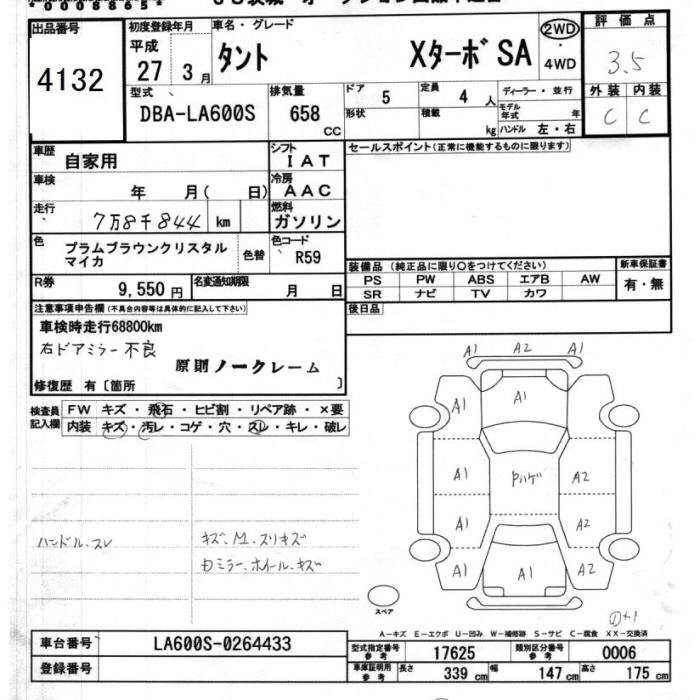 *0008865*
出品番号
4132
初度登録年月
平成
27 3月
車名・グレード
タント Xターボ SA
2WD
・
4WD
評価点
3.5
外装 内装
C C
型式
DBA-LA600S
排気量
658
CC
ドア 5
定員 4 人
ディーラー・並行
形状
積載 kg
モデル年式 年
ハンドル 左・右
車歴 自家用
シフト
IAT
セールスポイント(正常に機能するものに限ります)
車検 年 月( 日)
冷房
AAC
走行 7万8千844 km
燃料
ガソリン
色 プラムブラウンクリスタル
マイカ
色替
色コード
R59
装備品 (純正品に限り○をつけてください)
新車保証書
PS PW ABS エアB AW
SR ナビ TV カワ
有・無
R券 9,550 円
名変通知期限 月 日
後日品
注意事項申告欄(不具合内容等は具体的に記入して下さい)
車検時走行68800km
右ドアミラー不良
原則ノークレーム
修復歴 有〔箇所 〕
検査員
記入欄
FW キズ・飛石・ヒビ割・リペア跡・×要
内装 キズ・汚レ・コゲ・穴・スレ・キレ・破レ
ハンドル、スレ
キズ、M、スリキズ
Dミラー、ホイール、キズ
A1 A2 A1
A1 A1
A1 Pハゲ A2
A1 A2
A1 A1 A2
スペア
A-キズ E-エクボ U-凹み W-補修跡 S-サビ C-腐食 XX-交換済
車台番号 LA600S-0264433
登録番号
型式指定番号
参考
17625
類別区分番号
参考
0006
車庫証明用
参考
長さ 339 cm 幅 147 cm 高さ 175 cm